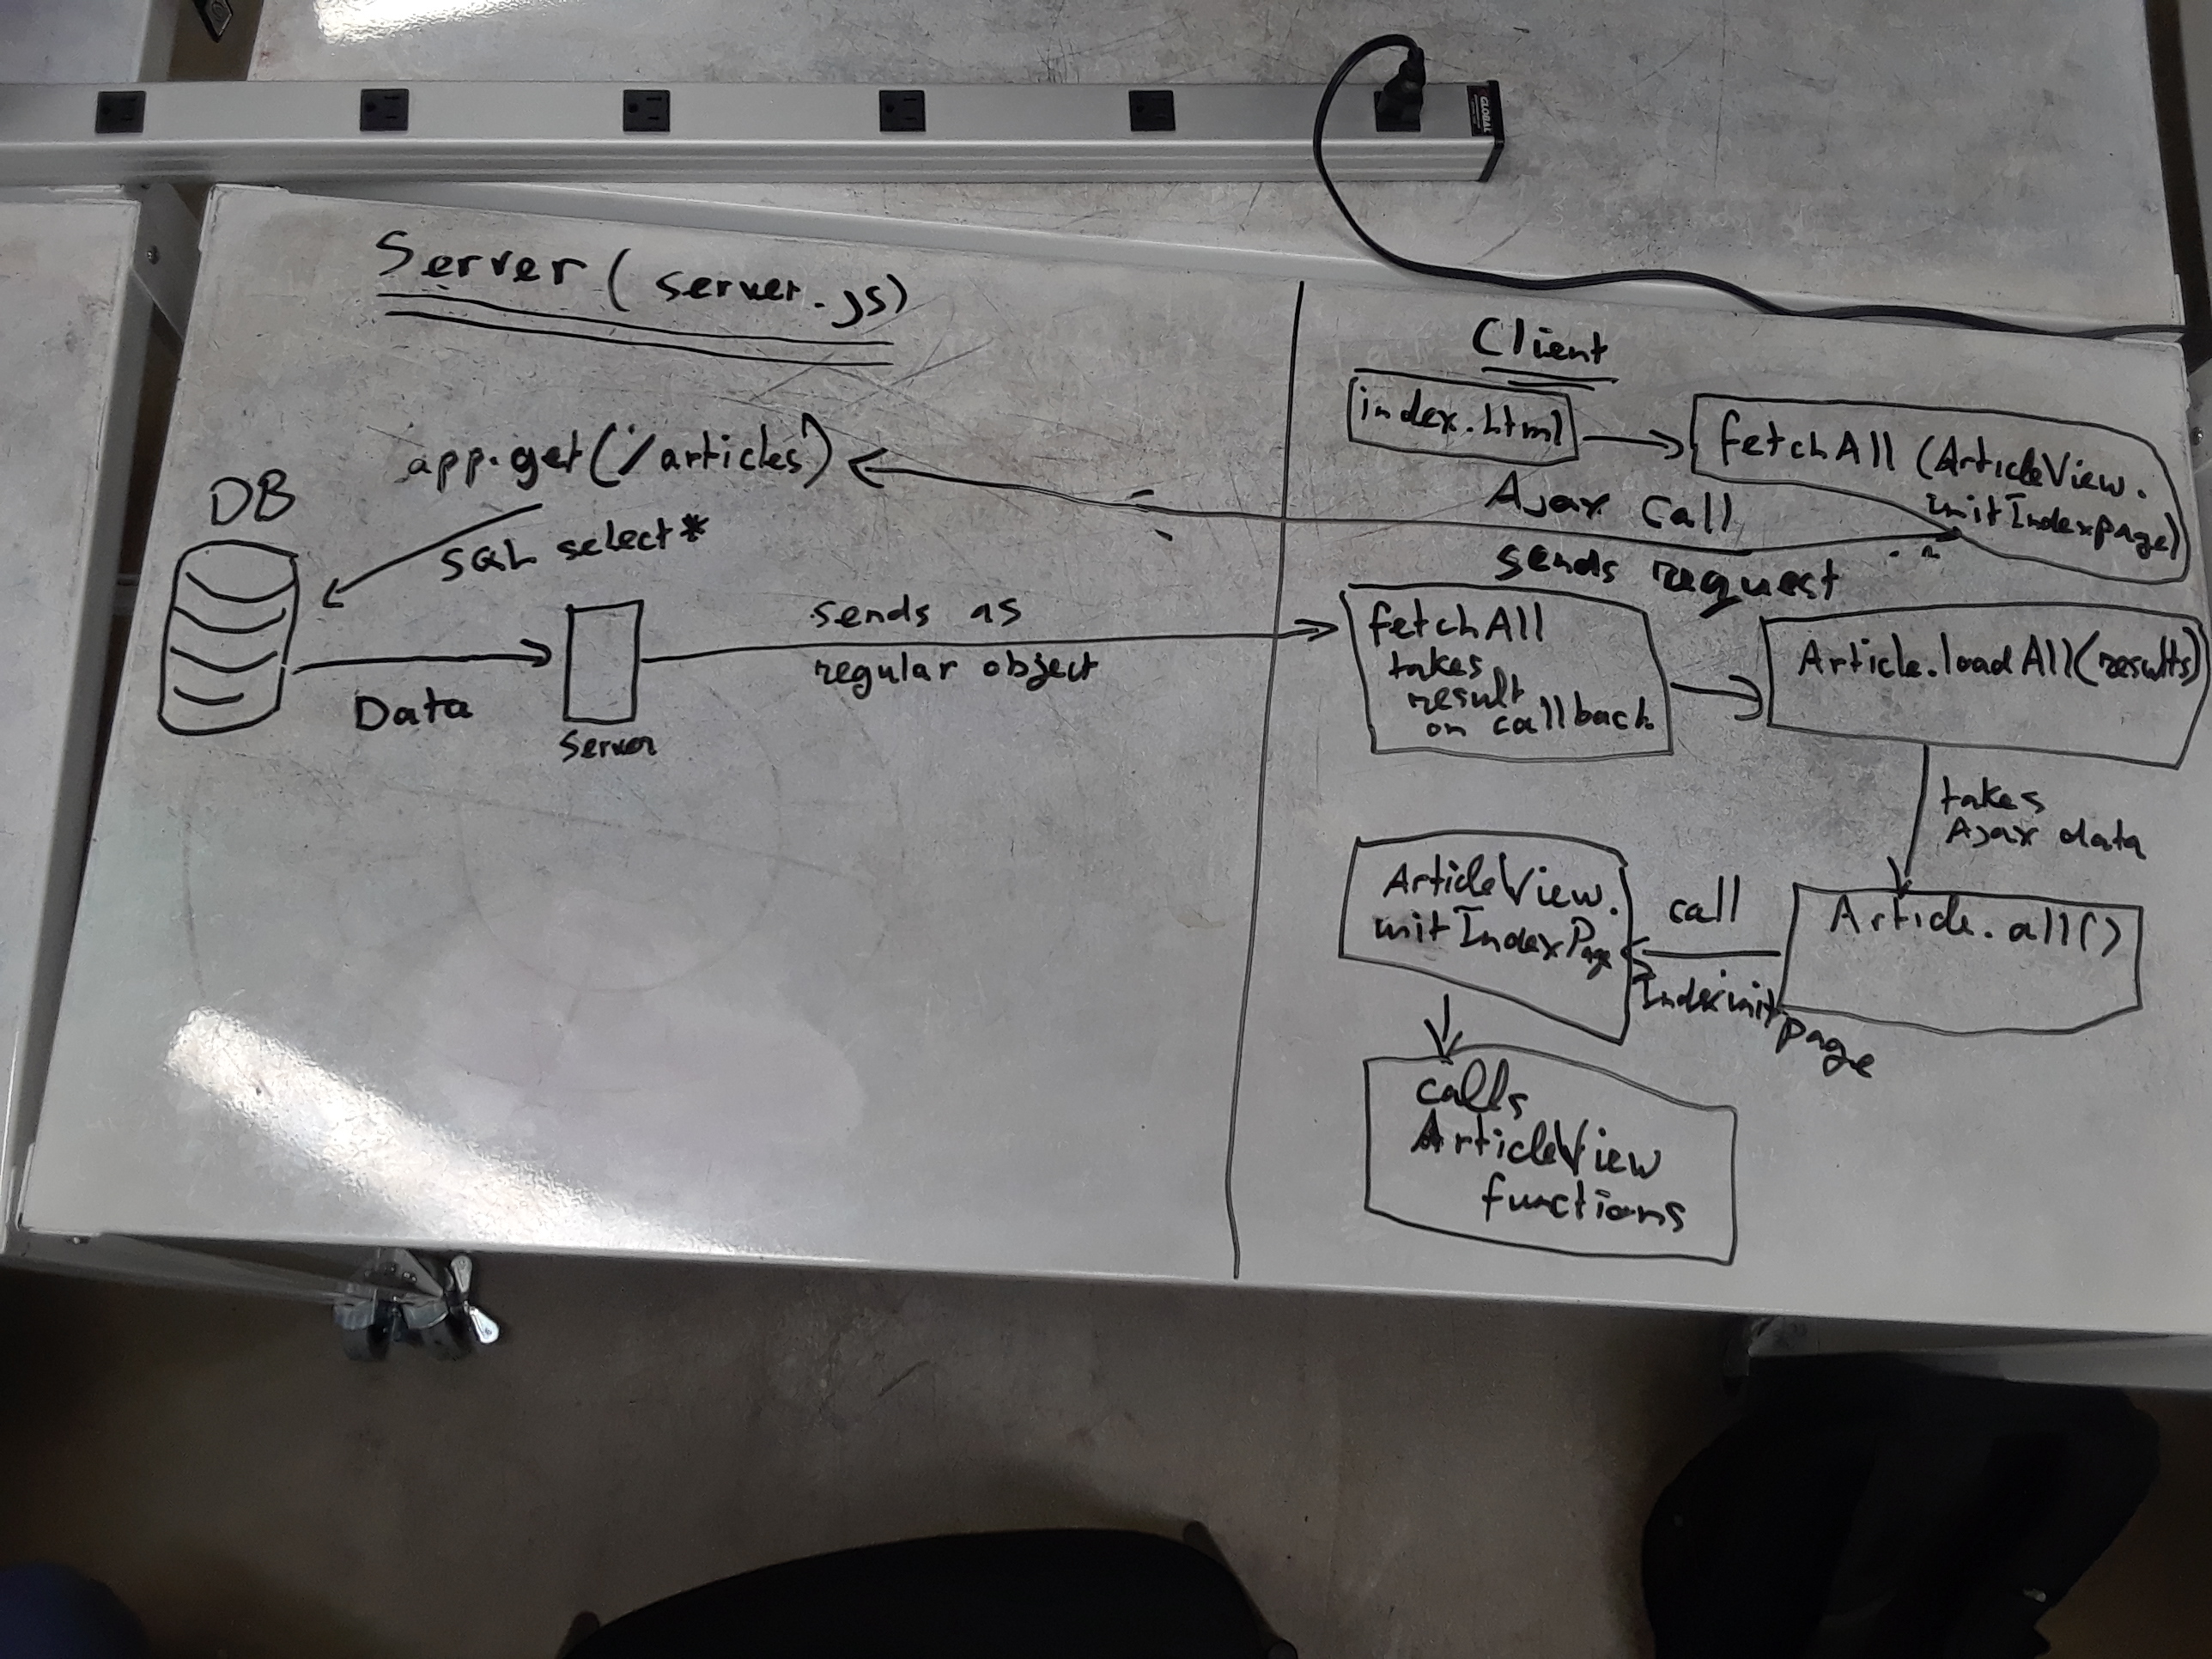 GLOBAL
Server (server.js)
app.get('/articles')
DB
SQL select*
Data
Server
sends as
regular object
Client
index.html
fetchAll (ArticleView.
initIndexPage)
Ajax Call
sends request
fetchAll
takes
result
on callback
Article.loadAll(results)
takes
Ajax data
Article.all()
call
Indexinit
page
ArticleView.
initIndexPage
calls
ArticleView
functions